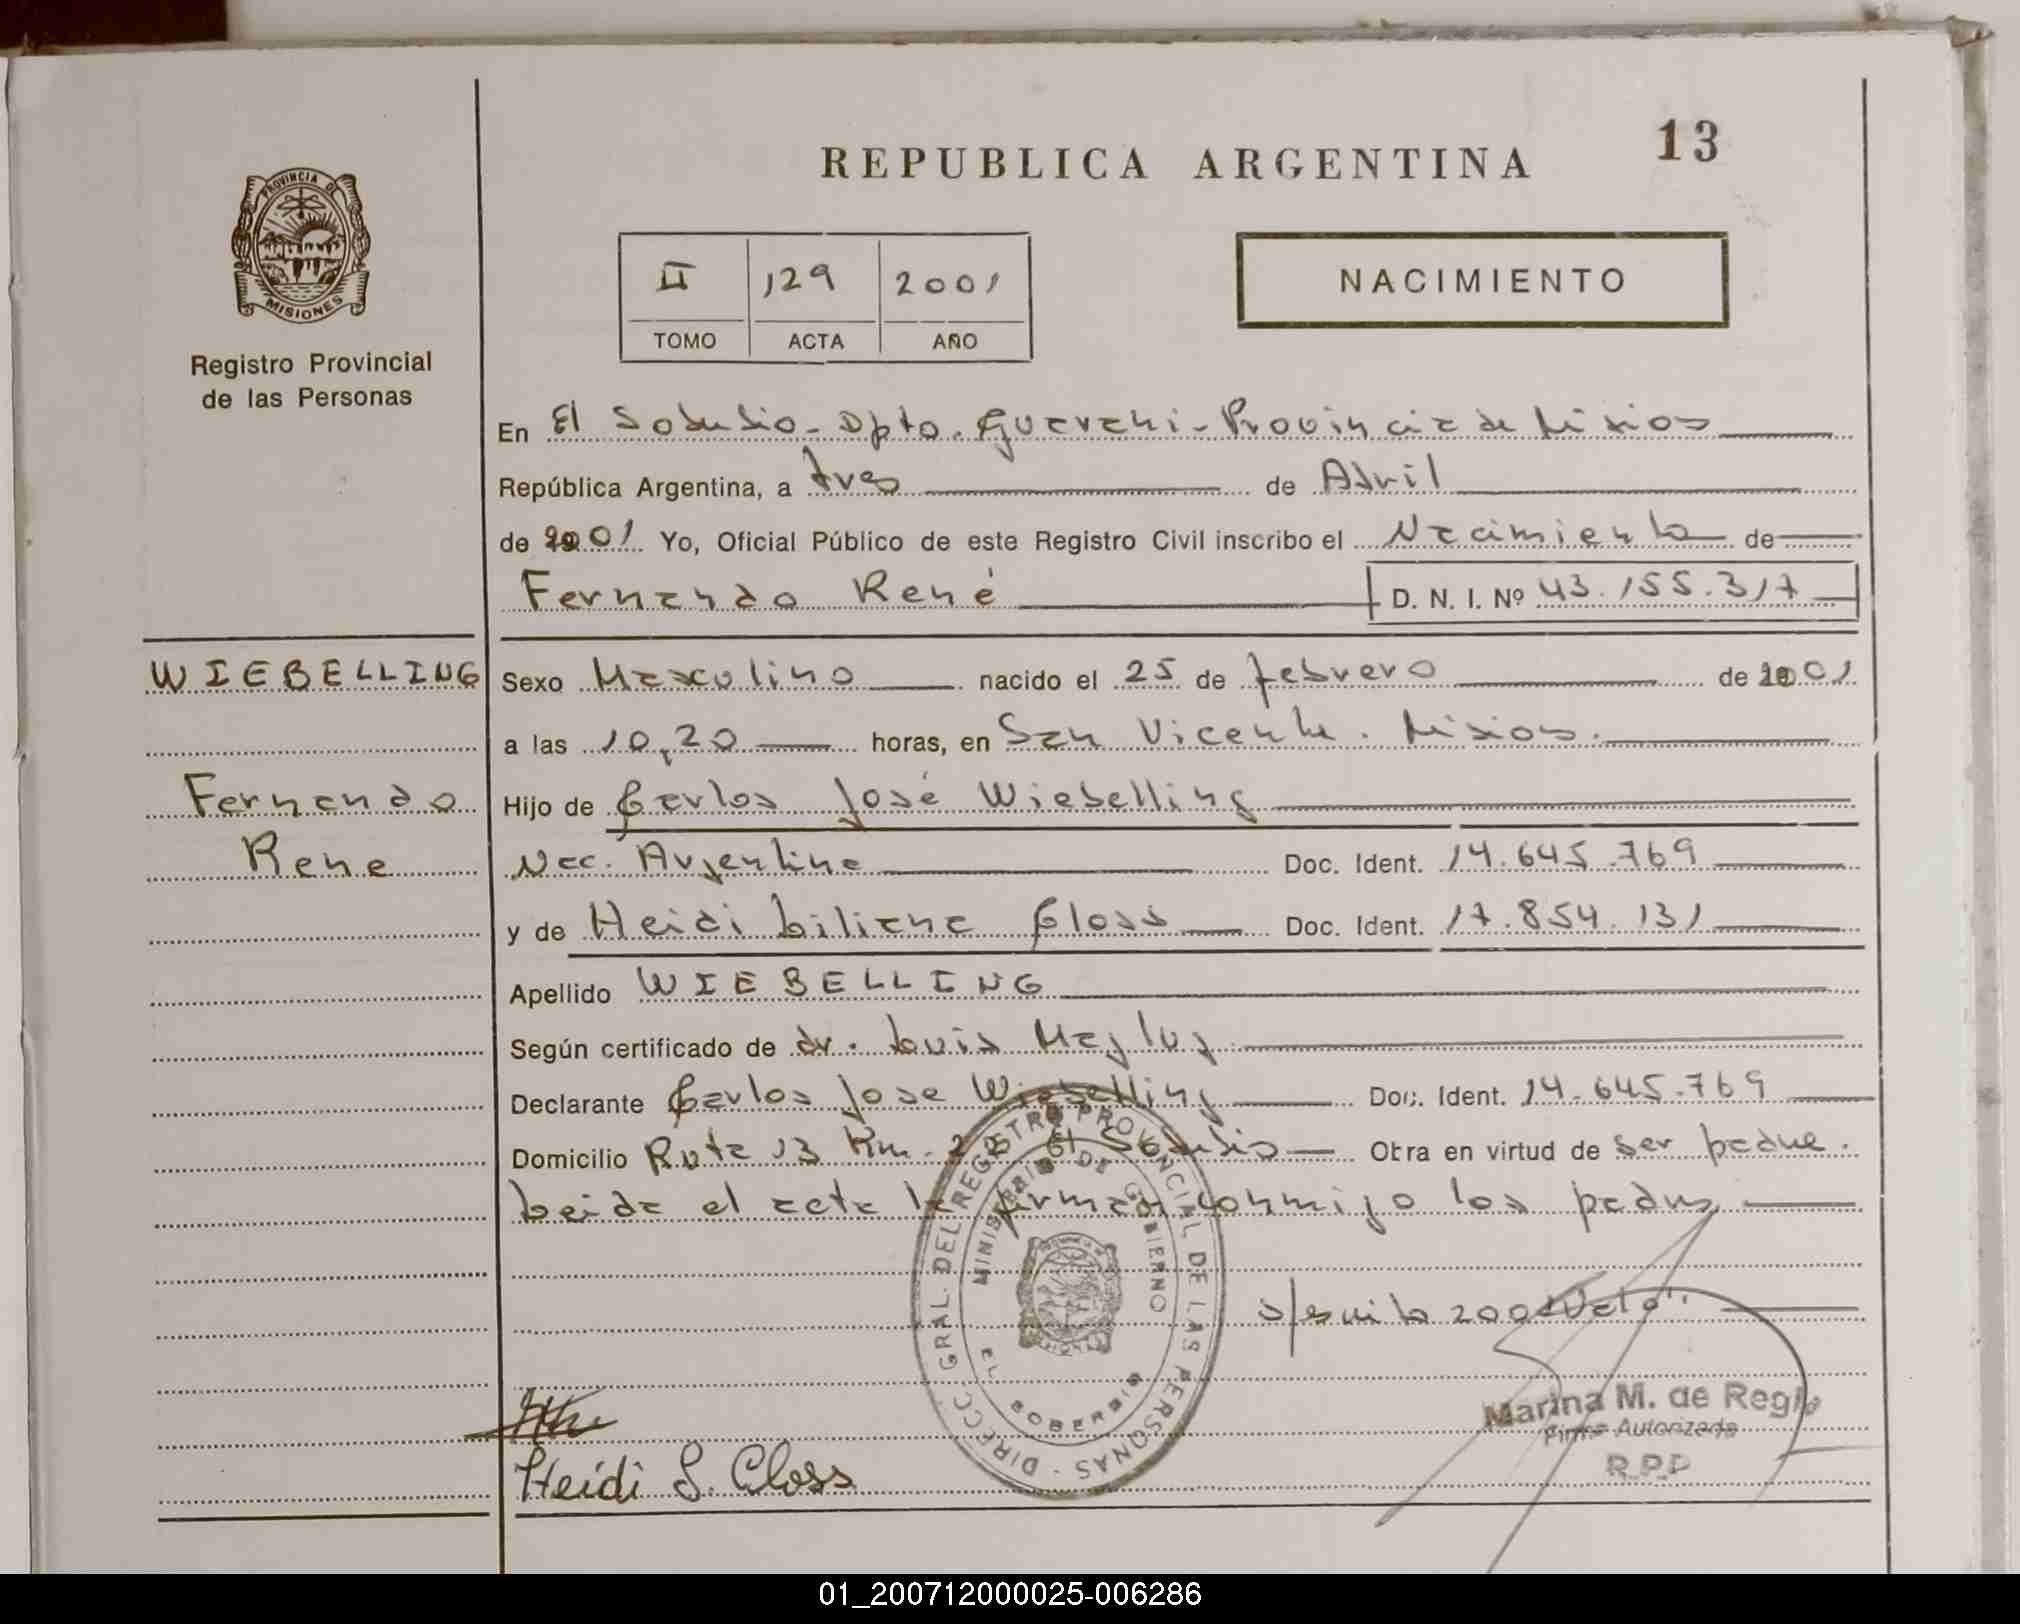 REPUBLICA ARGENTINA
13
PROVINCIA DE
MISIONES
Registro Provincial
de las Personas
II 129 2001
TOMO ACTA AÑO
NACIMIENTO
En El Soberbio - Dpto. Guarani - Provincia de Misiones
República Argentina, a tres de Abril
de 2001 Yo, Oficial Público de este Registro Civil inscribo el Nacimiento de
Fernando René D. N. I. Nº 43.155.317
WIEBELLING
Fernando
Rene
Sexo Masculino nacido el 25 de febrero de 2001
a las 10,20 horas, en San Vicente. Misiones.
Hijo de Carlos José Wiebelling
Nac. Argentina Doc. Ident. 14.645.769
y de Heidi Liliana Closs Doc. Ident. 17.854.131
Apellido WIEBELLING
Según certificado de dr. Luis
Declarante Carlos Jose Wiebelling Doc. Ident. 14.645.769
Domicilio Ruta 13 Km. El Soberbio Obra en virtud de ser padre.
Leida el acta la firman conmigo los padres
2001 Vale".
DIRECC. GRAL. DEL REGISTRO PROVINCIAL DE LAS PERSONAS
MINISTERIO DE GOBIERNO
EL SOBERBIO
Marina M. de Regis
Firma Autorizada
R.P.P
Heidi L. Closs
01_200712000025-006286